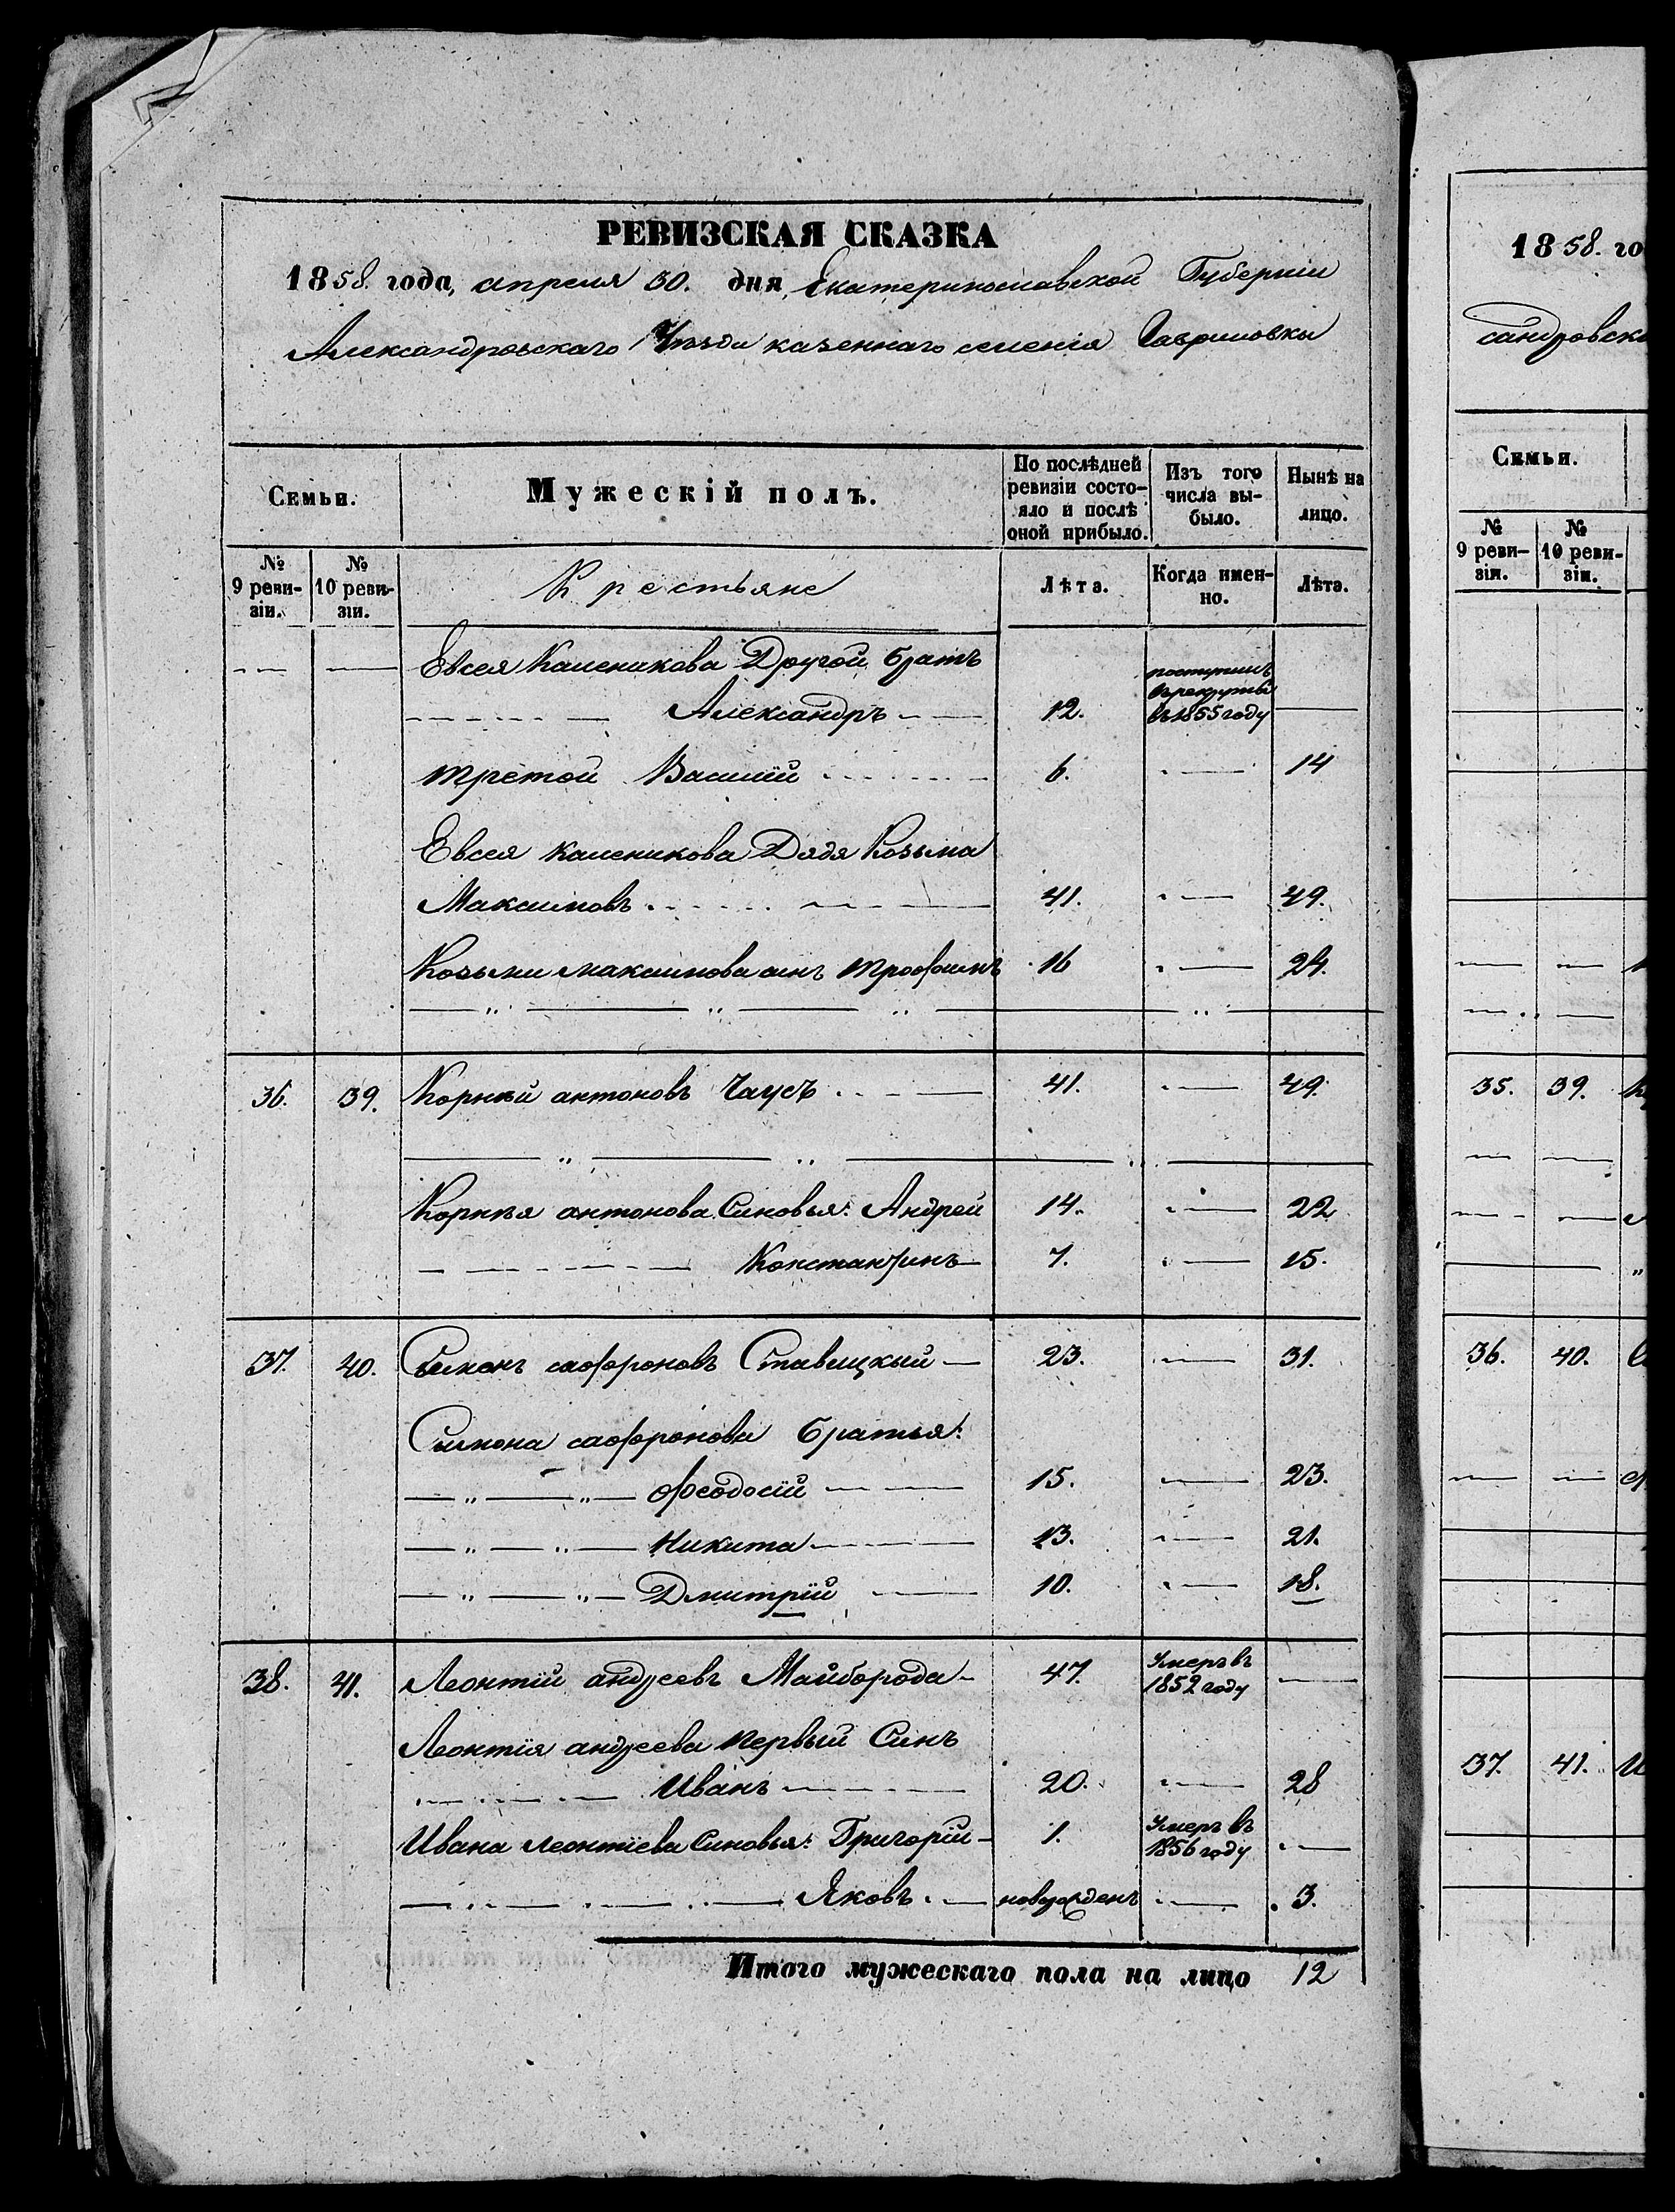 РЕВИЗСКАЯ СКАЗКА
1858. года, апреля 30. дня, Екатеринославской Губернии
Александровскаго Уѣзда казеннаго селенія Гавриловки
Семьи. Мужескій полъ. По послѣдней ревизіи состояло и послѣ оной прибыло. Изъ того числа выбыло. Нынѣ на лицо.
№ 9 ревизіи. № 10 ревизіи. Крестьяне Лѣта. Когда именно. Лѣта.
Евсея Каленикова Другой братъ
Александръ 12. поступилъ в рекруты въ 1855 году
третой Василій 6. 14
Евсея Каленикова Дядя Козьма
Максимовъ 41. 49.
Козьмы максимова синъ трофимъ 16 24.
36. 39. Корнѣй антоновъ Чаусъ 41. 49.
Корнѣя антонова Синовья: Андрей 14. 22
Константинъ 7. 15.
37. 40. Симонъ сафроновъ Ставицкый 23. 31.
Симона сафронова братья:
Феодосій 15. 23.
Никита 13. 21.
Дмитрій 10. 18.
38. 41. Леонтій андреевъ Майборода 47. Умеръ въ 1852 году
Леонтія андреева первый Синъ
Иванъ 20. 28
Ивана леонтіева Синовья: Григорій 1. Умеръ въ 1856 году
Яковъ новорожденъ 3.
Итого мужескаго пола на лицо 12
1858. го
сандровск
Семьи.
№ 9 ревизіи. № 10 ревизіи.
35. 39.
36. 40.
37. 41.